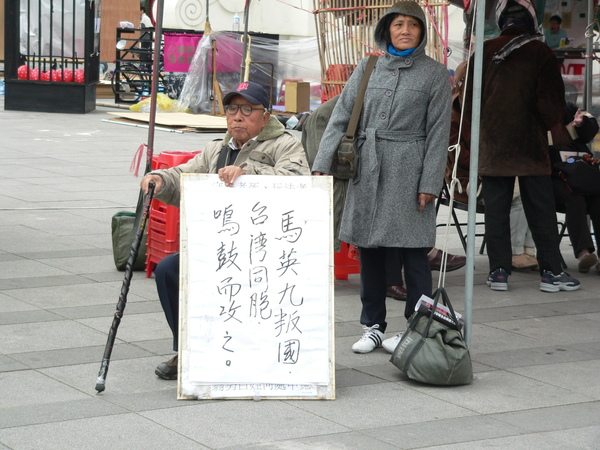 馬英九叛國.
台湾同胞.
鳴鼓而攻之。